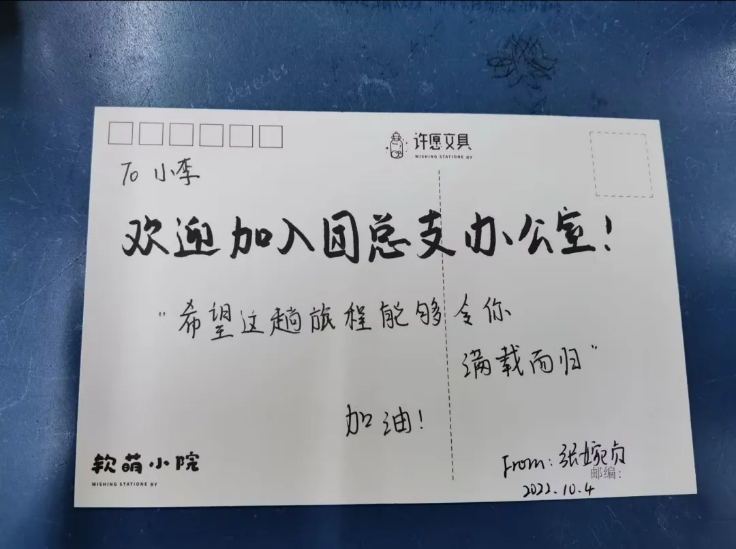 许愿文具
WISHING STATIONE RY
To 小李
欢迎加入团总支办公室！
“希望这趟旅程能够令你
满载而归”
加油！
软萌小院
WISHING STATIONE RY
From: 张婉贞
邮编:
2022.10.4